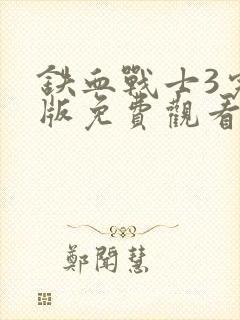 鉄血戰士3
版免費觀看
鄭聞慧